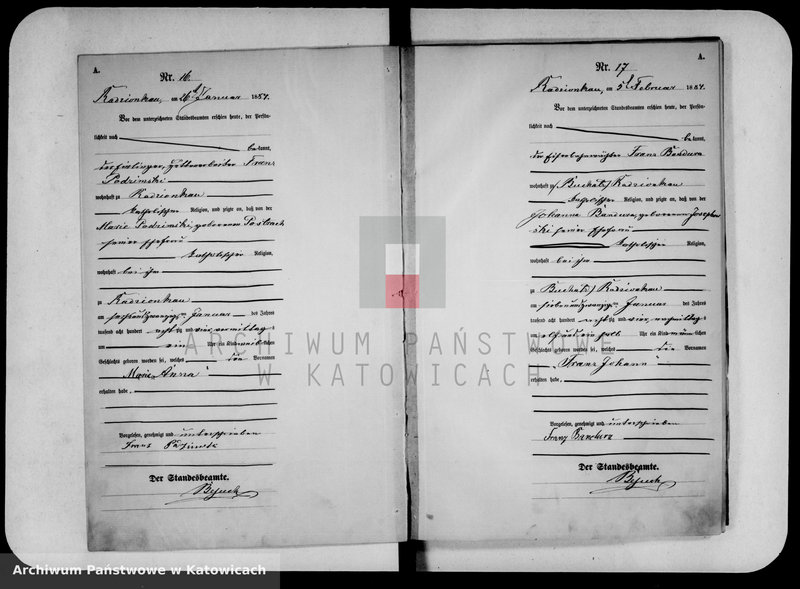 A.
Nr. 16
Radzionkau, am 26t Januar 1884.
Vor dem unterzeichneten Standesbeamten erschien heute, der Persön-
lichkeit nach
bekannt,
Franz
Podzimski
wohnhaft zu Radzionkau
katholischer Religion, und zeigte an, daß von der
Marie Podzimski, geborenen
seiner Ehefrau
katholischer Religion,
wohnhaft bei ihm
zu Radzionkau
am Januar des Jahres
tausend acht hundert achtzig und vier vormittag
um Uhr ein Kind weiblichen
Geschlechts geboren worden sei, welches die Vornamen
Marie Anna
erhalten habe.
Vorgelesen, genehmigt und unterschrieben
Franz
Der Standesbeamte.
A.
Nr. 17
Radzionkau, am 5t Februar 1884.
Vor dem unterzeichneten Standesbeamten erschien heute, der Persön-
lichkeit nach
bekannt,
der Franz Bandura
wohnhaft Radzionkau
katholischer Religion, und zeigte an, daß von der
Johanna Bandura, geborenen
seiner Ehefrau
katholischer Religion,
wohnhaft bei ihm
zu Radzionkau
am siebenundzwanzigsten Januar des Jahres
tausend acht hundert achtzig und vier, nachmittag
um halb Uhr ein Kind männlichen
Geschlechts geboren worden sei, welches die Vornamen
Franz Johann
erhalten habe.
Vorgelesen, genehmigt und unterschrieben
Franz Bandura
Der Standesbeamte.
ARCHIWUM PAŃSTWOWE
W KATOWICACH
Archiwum Państwowe w Katowicach